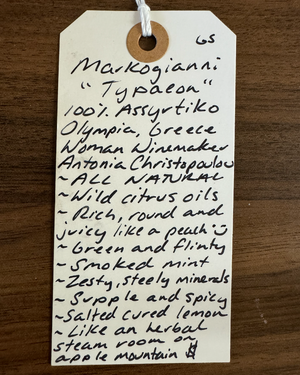 GS
Markogianni
"Typaeon"
100% Assyrtiko
Olympia, Greece
Woman Winemaker
Antonia Christopoulou
~ ALL NATURAL
~ Wild citrus oils
~ Rich, round and
juicy like a peach
~ Green and flinty
~ Smoked mint
~ Zesty, steely minerals
~ Supple and spicy
~ Salted cured lemon
~ Like an herbal
steam room on
apple mountain